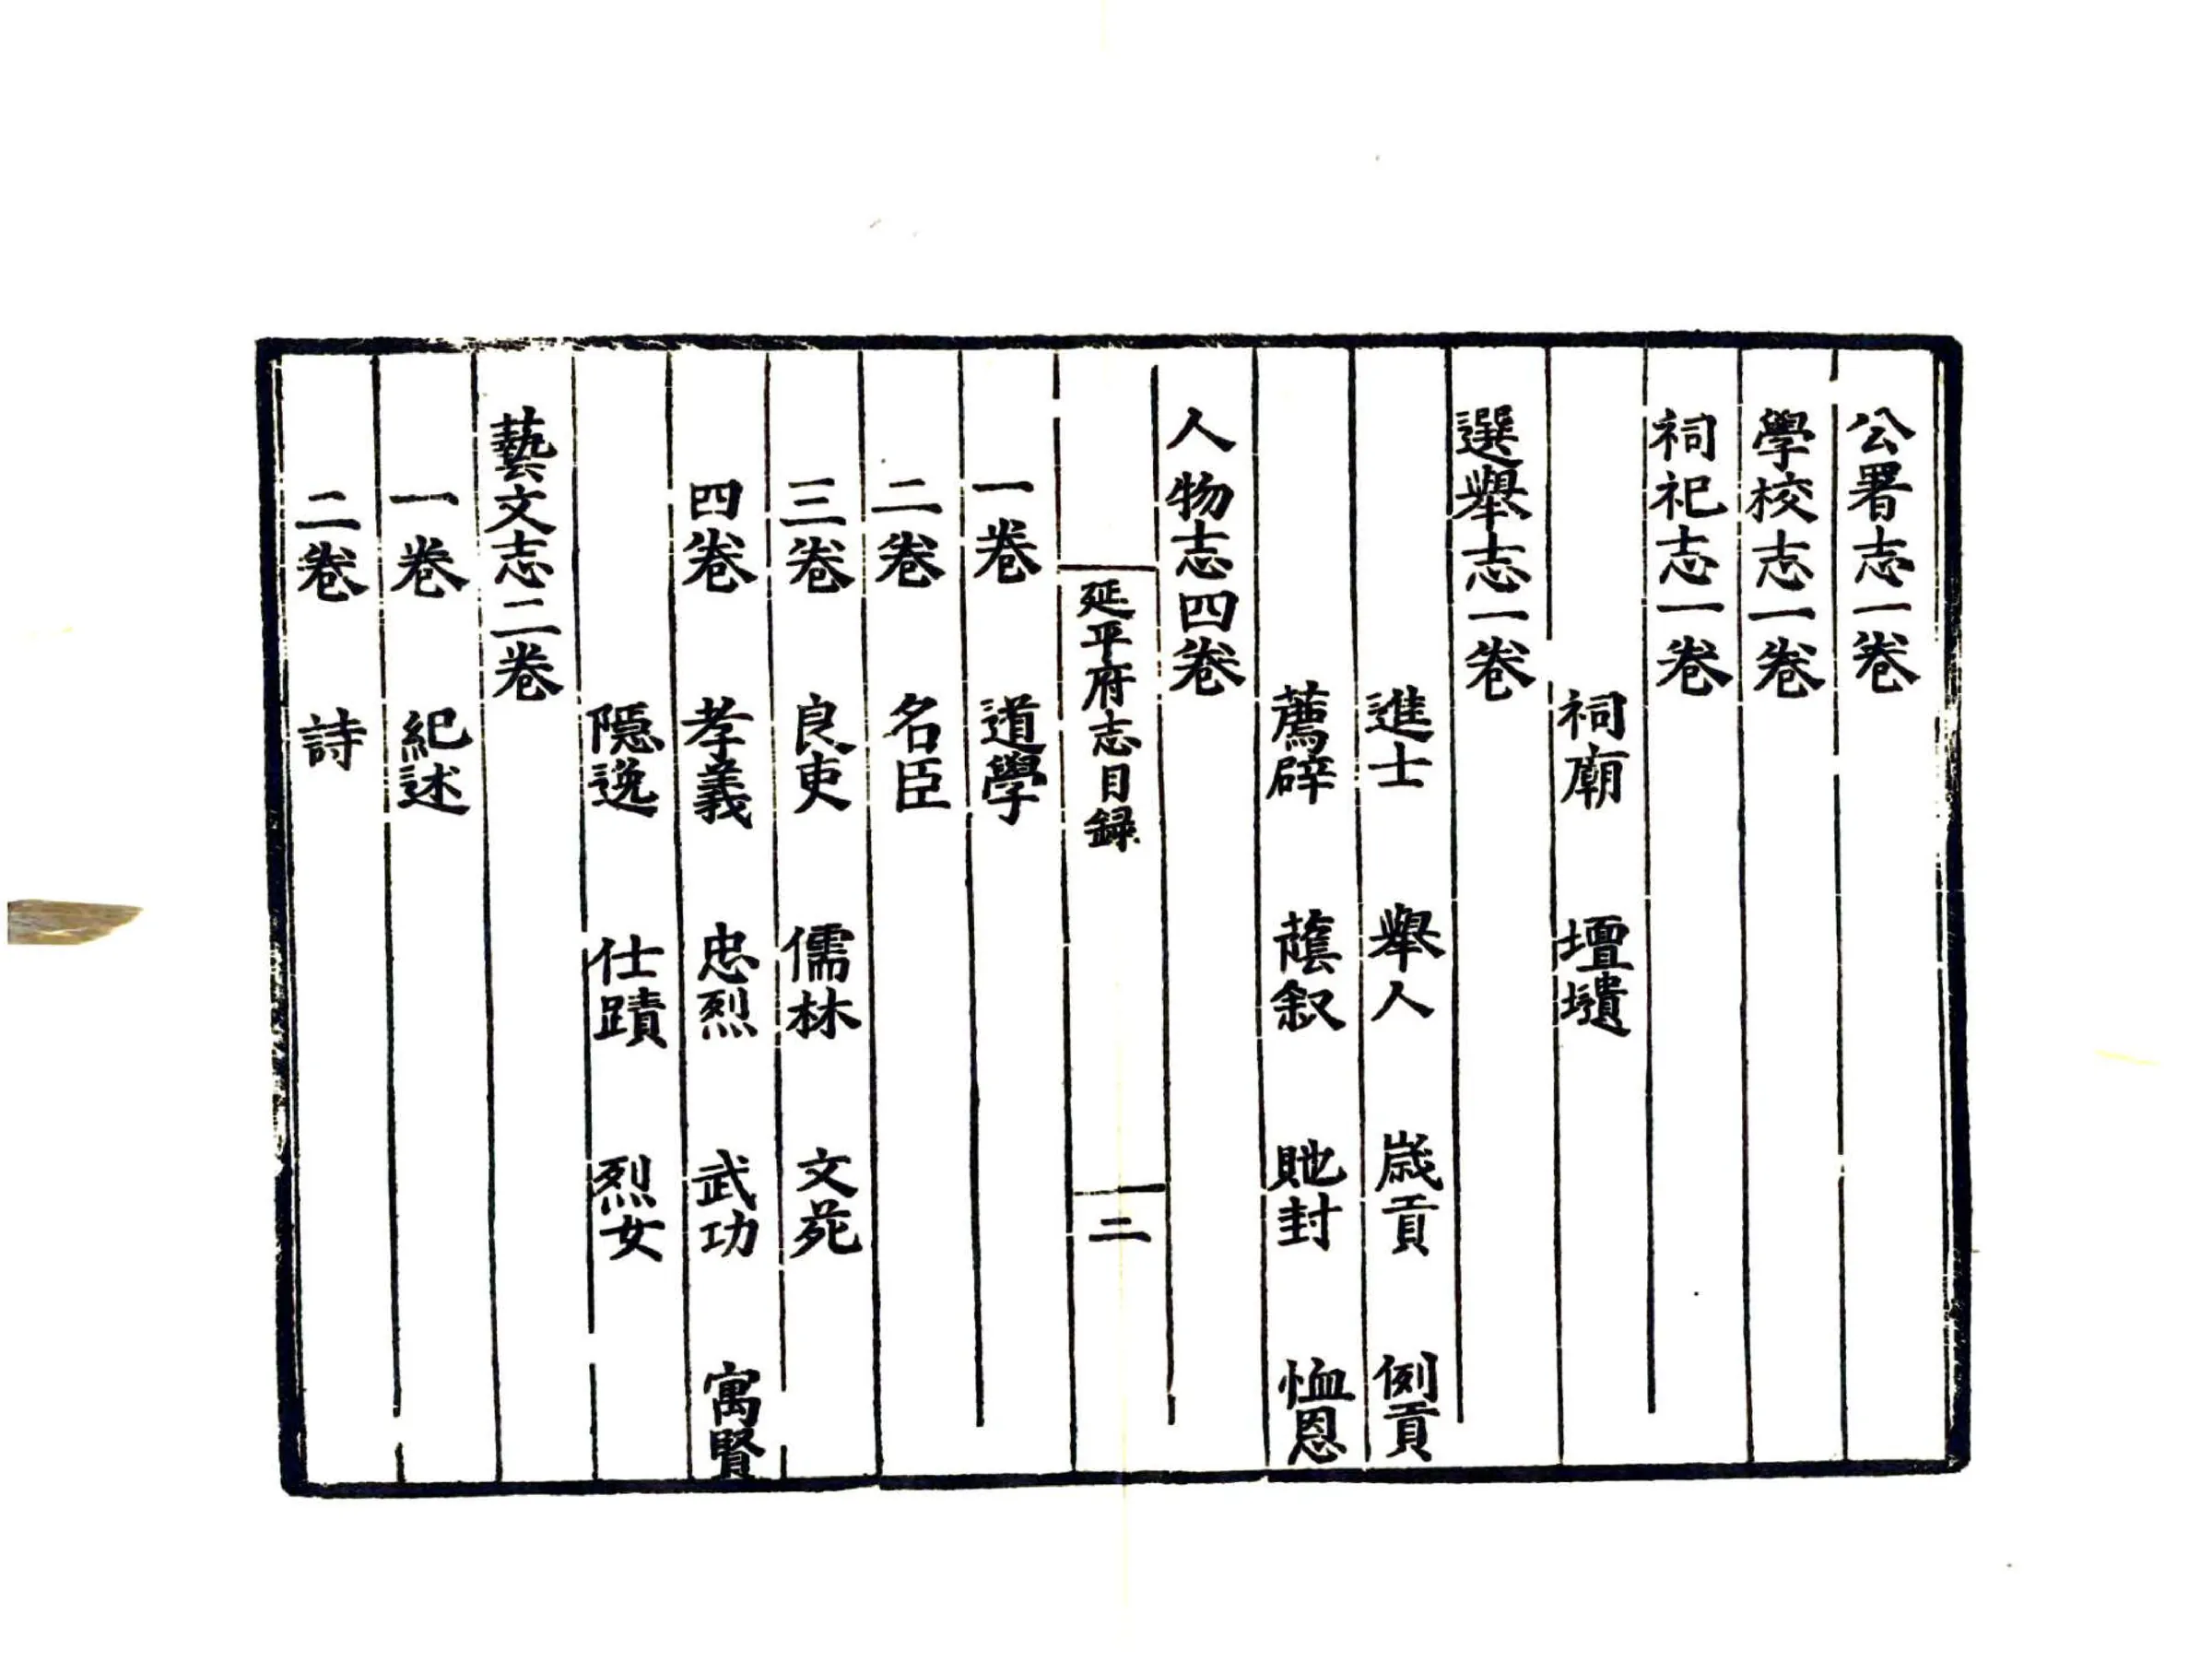 公署志一卷
學校志一卷
祠祀志一卷
祠廟 壇壝
選舉志一卷
進士 舉人 歲貢 例貢
薦辟 蔭叙 貤封 恤恩
人物志四卷
延平府志目録 二
一卷 道學
二卷 名臣
三卷 良吏 儒林 文苑
四卷 孝義 忠烈 武功 寓賢
隱逸 仕蹟 烈女
藝文志二卷
一卷 紀述
二卷 詩